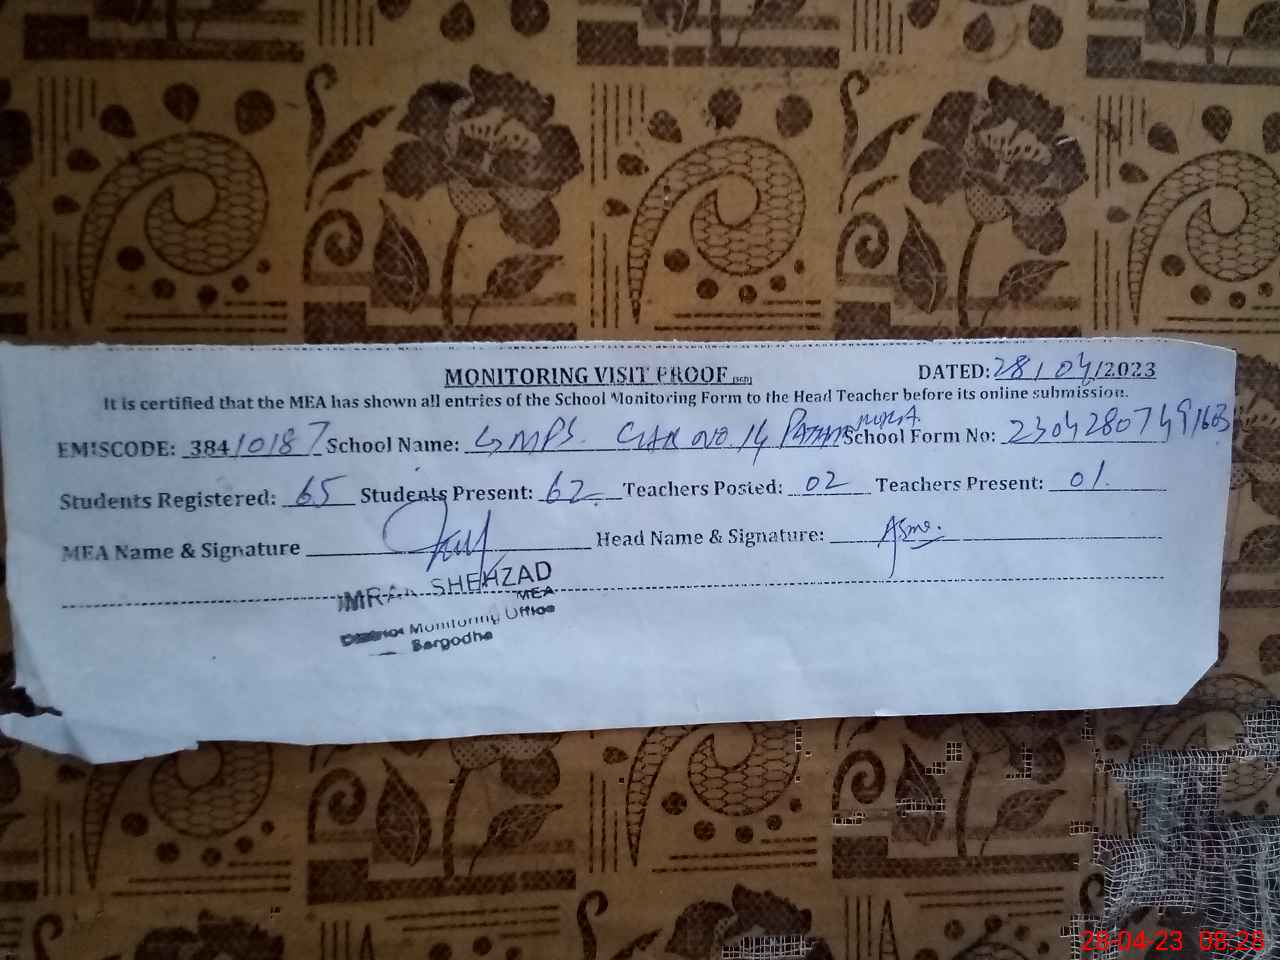 MONITORING VISIT PROOF (SGD) DATED: 28/04/2023
It is certified that the MEA has shown all entries of the School Monitoring Form to the Head Teacher before its online submission.
EMISCODE: 38410187 School Name: GMPS. Chak No. 14 School Form No:
Students Registered: 65 Students Present: 62 Teachers Posted: 02 Teachers Present: 01.
MEA Name & Signature Head Name & Signature: Asma.
IMRAN SHEHZAD
MEA
District Monitoring Office
Sargodha
28-04-23 08:28